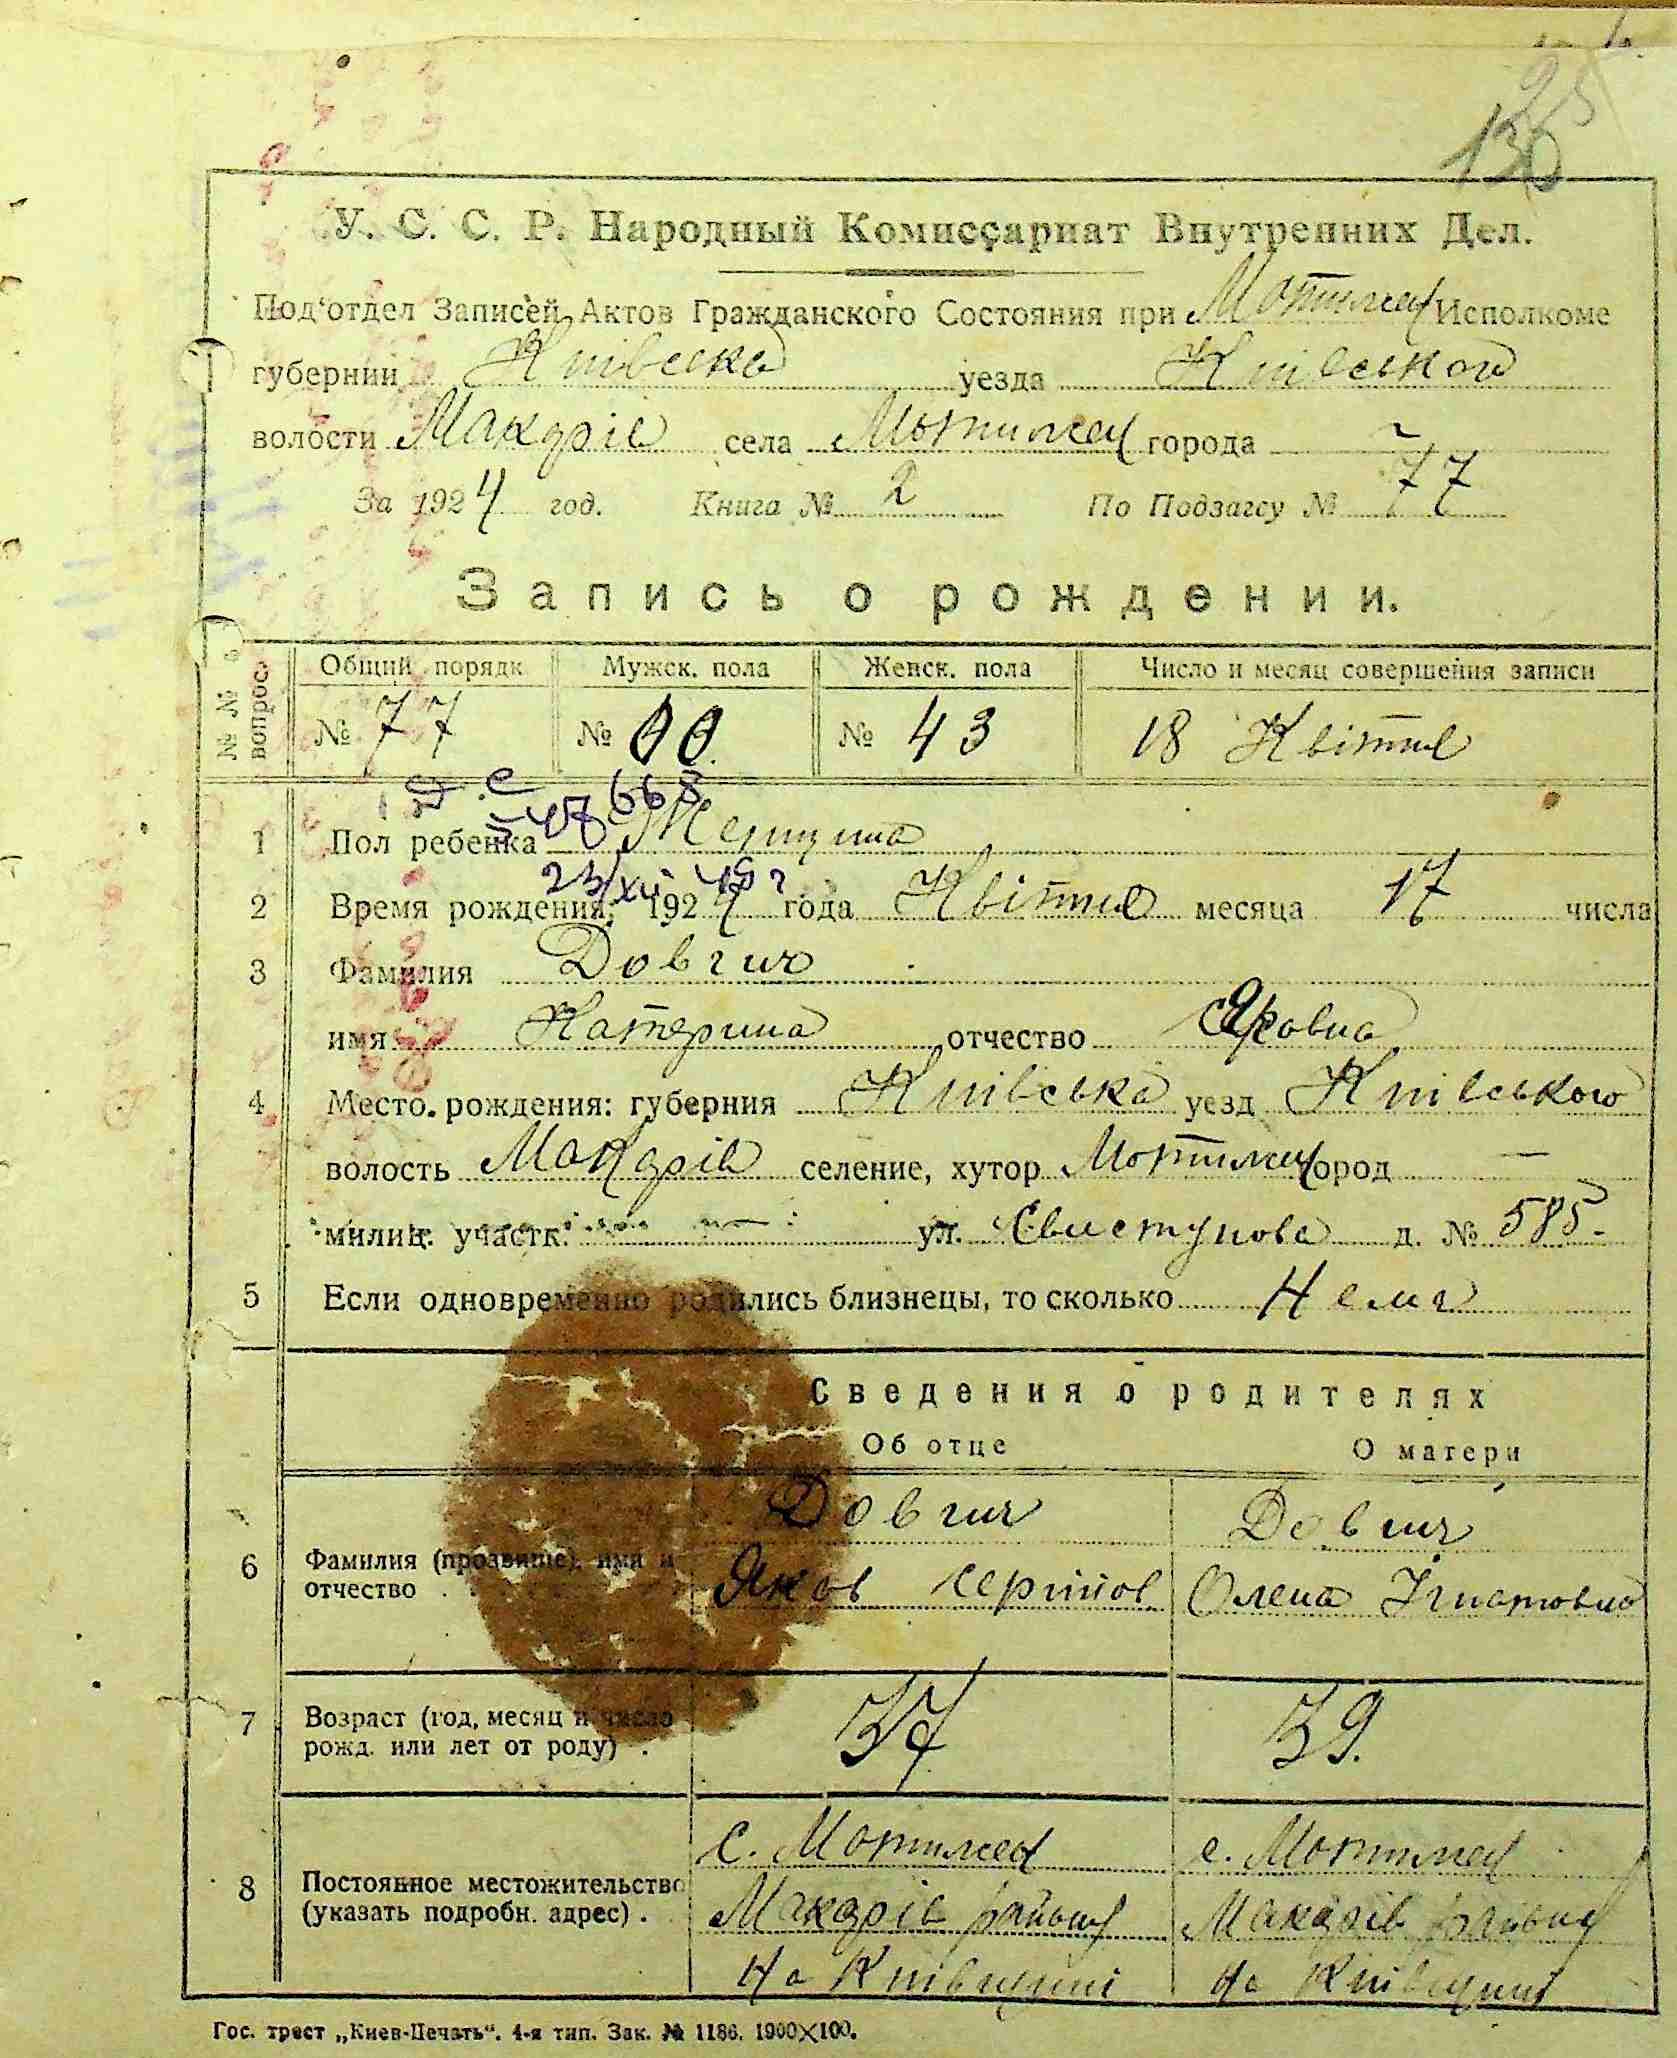 135
У. С. С. Р. Народный Комиссариат Внутренних Дел.
Под'отдел Записей Актов Гражданского Состояния при Мотижец Исполкоме
губернии Київська уезда Київського
волости Макарів села Мотижец города —
За 1924 год. Книга № 2 По Подзагсу № 77
Запись о рождении.
№№ вопрос. Общий порядк. Мужск. пола Женск. пола Число и месяц совершения записи
№ 77 № 00 № 43 18 Квітня
668
1 Пол ребенка Женщина
23/XII 45 г
2 Время рождения: 1924 года Квітня месяца 17 числа
3 Фамилия Довгич
имя Катерина отчество Яковна
4 Место рождения: губерния Київська уезд Київського
волость Макарів селение, хутор Мотижец город —
милиц. участк. — ул. Свистунова д. № 585.
5 Если одновременно родились близнецы, то сколько Нема
Сведения о родителях
Об отце О матери
Довгич Довгич
6 Фамилия (прозвище), имя и отчество Яков Сергійов. Олена Ігнатовна
7 Возраст (год, месяц и число рожд. или лет от роду). 37 39.
с. Мотижец с. Мотижец
8 Постоянное местожительство (указать подробн. адрес). Макарів району Макарів району
На Київщині На Київщині
Гос. трест „Киев-Печать“. 4-я тип. Зак. № 1186. 1900×100.